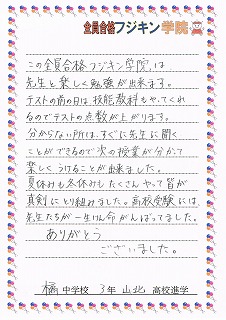 全員合格フジキン学院
この全員合格フジキン学院は
先生と楽しく勉強が出来ます。
テストの前の日は、技能教科もやってくれ
るのでテストの点数が上がります。
分からない所は、すぐに先生に聞く
ことができるので次の授業が分かて
楽しくうけることが出来ました。
夏休みも冬休みもたくさんやって皆が
真剣にとり組みました。高校受験には、
先生たちが一生けん命がんばってました。
ありがとう
ございました。
橘中学校 3年 山北 高校進学